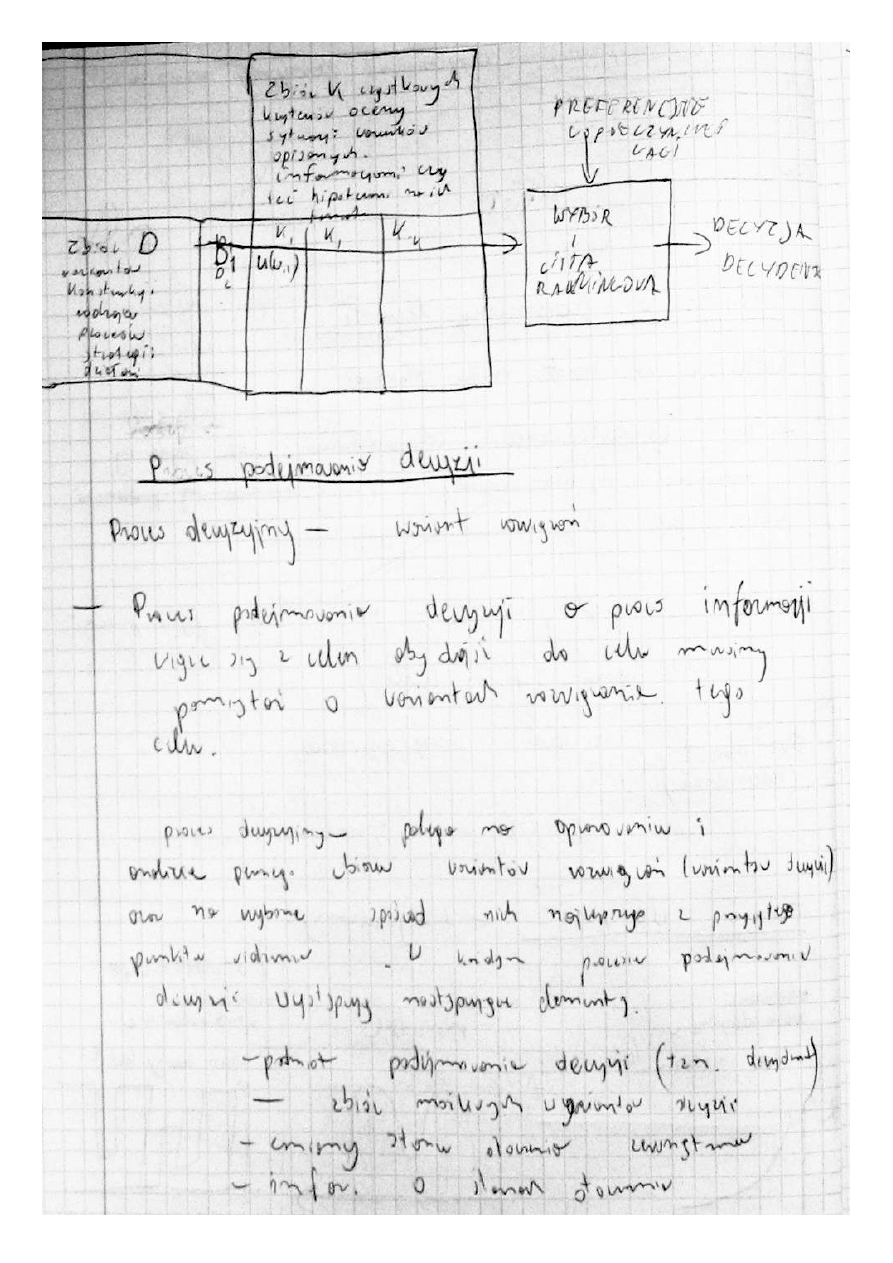 Zbiór K cząstkowych
kryteriów oceny
sytuacji warunków
opisanych
informacjami czy
też hipotezami na ich
temat
PREFERENCJE
WSPÓŁCZYNNIKI
WAGI
WYBÓR
I
LISTA
RANKINGOWA
DECYZJA
DECYDENTA
K1 K1 K-k
Zbiór D
wariantów
konstrukcji
rodzaju
procesów
strategii
działań
D1
U(W,1)
Proces podejmowania decyzji
Proces decyzyjny — wariant rozwiązań
— Proces podejmowania decyzji o proces informacji
wiąże się z celem aby dojść do celu musimy
pamiętać o wariantach rozwiązania tego
celu.
proces decyzyjny — polega na opracowaniu i
analizie pewneg. zbioru wariantów rozwiązań (wariantów decyzji)
oraz na wyborze spośród nich najlepszego z przyjętego
punktu widzenia. W każdym procesie podejmowania
decyzji występują następujące elementy.
- podmiot podejmowania decyzji (tzn. decydent)
— zbiór możliwych wariantów decyzji
- zmiany stanu otoczenia zewnętrzne
- infor. o stanach otoczenia